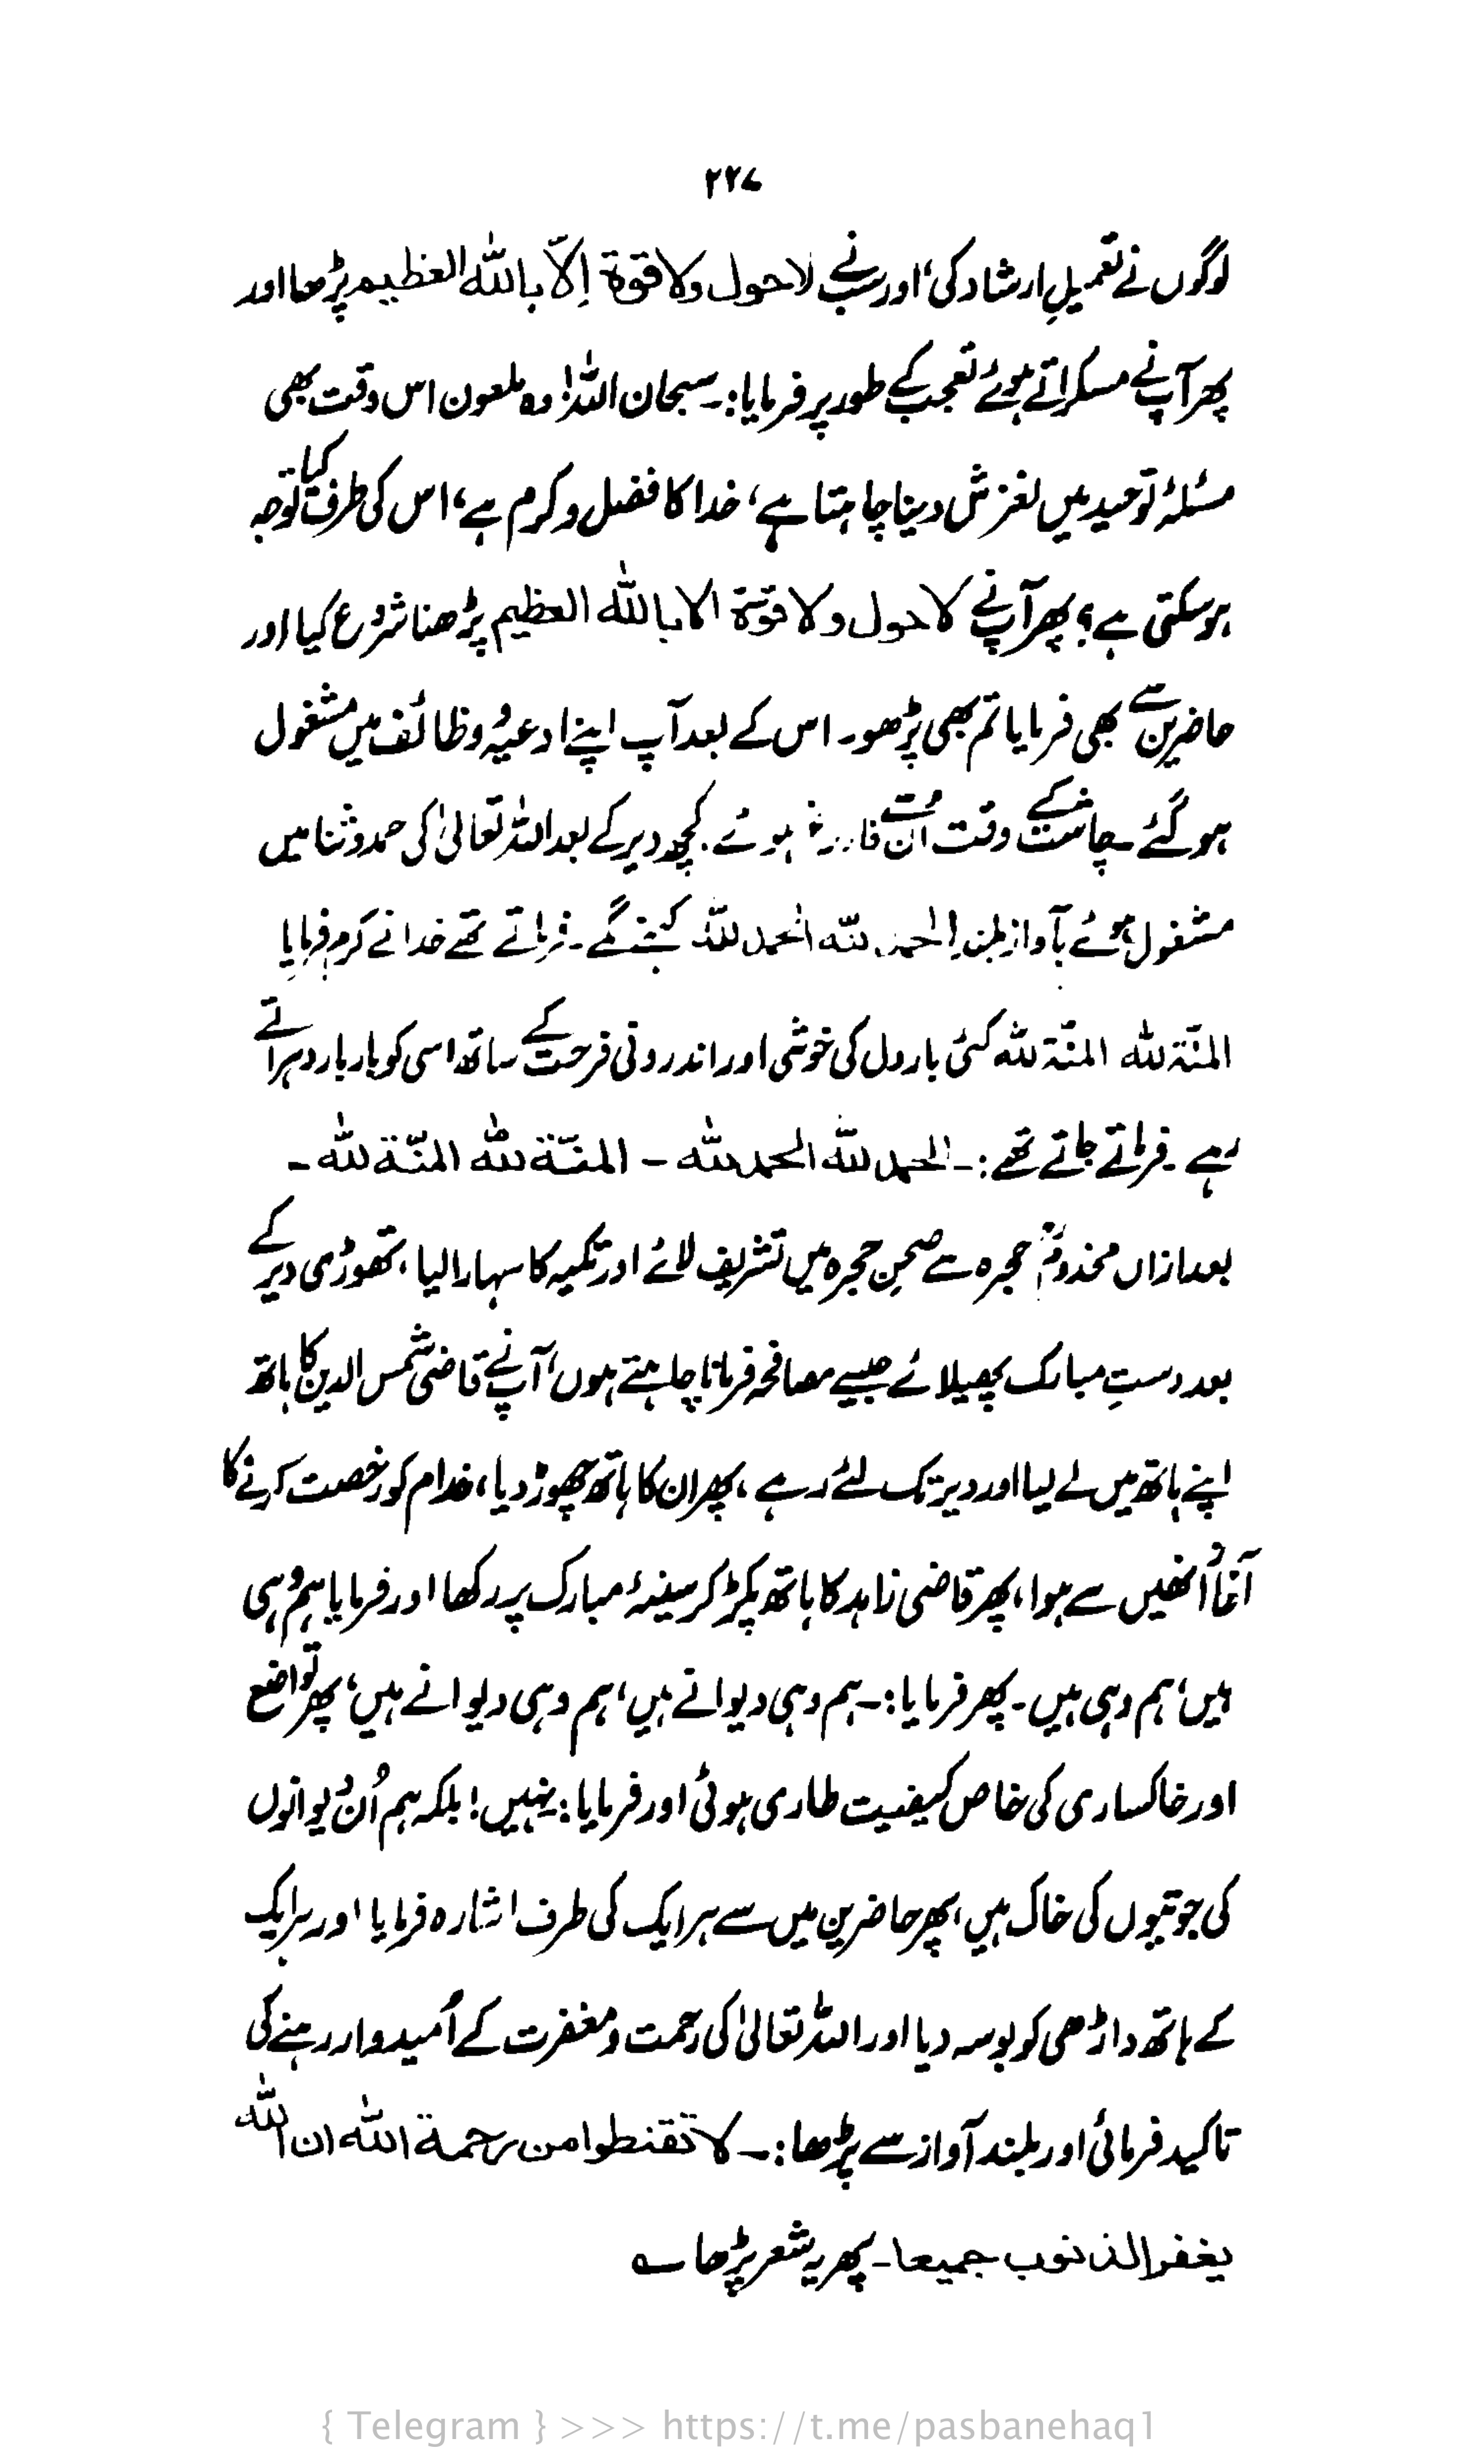 ۲۲۷
لوگوں نے تعمیلِ ارشاد کی، اور سب نے لاحول ولا قوة اِلّا باللہ العظیم پڑھا اور
پھر آپ نے مسکراتے ہوئے تعجب کے طور پر فرمایا:۔ سبحان اللہ! وہ ملعون اس وقت بھی
مسئلۂ توحید میں لغزش دینا چاہتا ہے، خدا کا فضل و کرم ہے، اس کی طرف کیا توجہ
ہو سکتی ہے؟ پھر آپ نے لاحول ولا قوّة الا باللہ العظیم پڑھنا شروع کیا اور
حاضرین سے بھی فرمایا تم بھی پڑھو۔ اس کے بعد آپ اپنے ادعیہ و وظائف میں مشغول
ہو گئے۔ چاشت کے وقت اُن سے فارغ ہوئے۔ کچھ دیر کے بعد اللہ تعالیٰ کی حمد و ثنا میں
مشغول ہوئے بآواز بلند الحمد للہ الحمد للہ کہنے لگے۔ فرماتے تھے خدا نے کرم فرمایا
المنّة للہ المنّة للہ کئی بار دل کی خوشی اور اندرونی فرحت کے ساتھ اسی کو بار بار دہراتے
رہے۔ فرماتے جاتے تھے:۔ الحمد للہ الحمد للہ ۔ المنّة للہ المنّة للہ ۔
بعد ازاں مخدومؒ حجرہ سے صحنِ حجرہ میں تشریف لائے اور تکیہ کا سہارا لیا، تھوڑی دیر کے
بعد دستِ مبارک پھیلائے جیسے مصافحہ فرمانا چاہتے ہوں، آپ نے قاضی شمس الدین کا ہاتھ
اپنے ہاتھ میں لے لیا اور دیر تک لئے رہے، پھر ان کا ہاتھ چھوڑ دیا، خدام کو رخصت کرنے کا
آغاز اُنھیں سے ہوا، پھر قاضی زاہد کا ہاتھ پکڑ کر سینۂ مبارک پر رکھا اور فرمایا ہم وہی
ہیں، ہم وہی ہیں۔ پھر فرمایا:۔ ہم وہی دیوانے ہیں، ہم وہی دیوانے ہیں، پھر تواضع
اور خاکساری کی خاص کیفیت طاری ہوئی اور فرمایا: نہیں! بلکہ ہم اُن دیوانوں
کی جوتیوں کی خاک ہیں، پھر حاضرین میں سے ہر ایک کی طرف اشارہ فرمایا اور ہر ایک
کے ہاتھ داڑھی کو بوسہ دیا اور اللہ تعالیٰ کی رحمت و مغفرت کے اُمیدوار رہنے کی
تاکید فرمائی اور بلند آواز سے پڑھا:۔ لا تقنطوا من رحمة اللہ ان اللہ
یغفر الذنوب جمیعا۔ پھر یہ شعر پڑھا ؎
{ Telegram } >>> https://t.me/pasbanehaq1